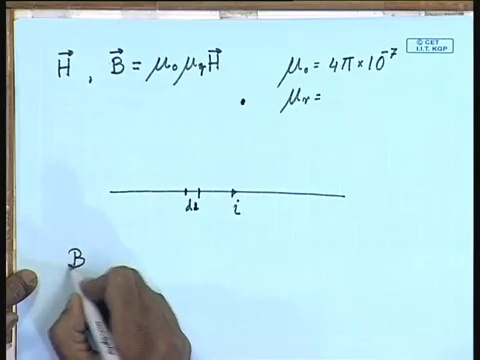 © CET
I.I.T. KGP
H⃗ , B⃗ = μ₀ μᵣ H⃗
μ₀ = 4π × 10⁻⁷
μᵣ =
dl i
B